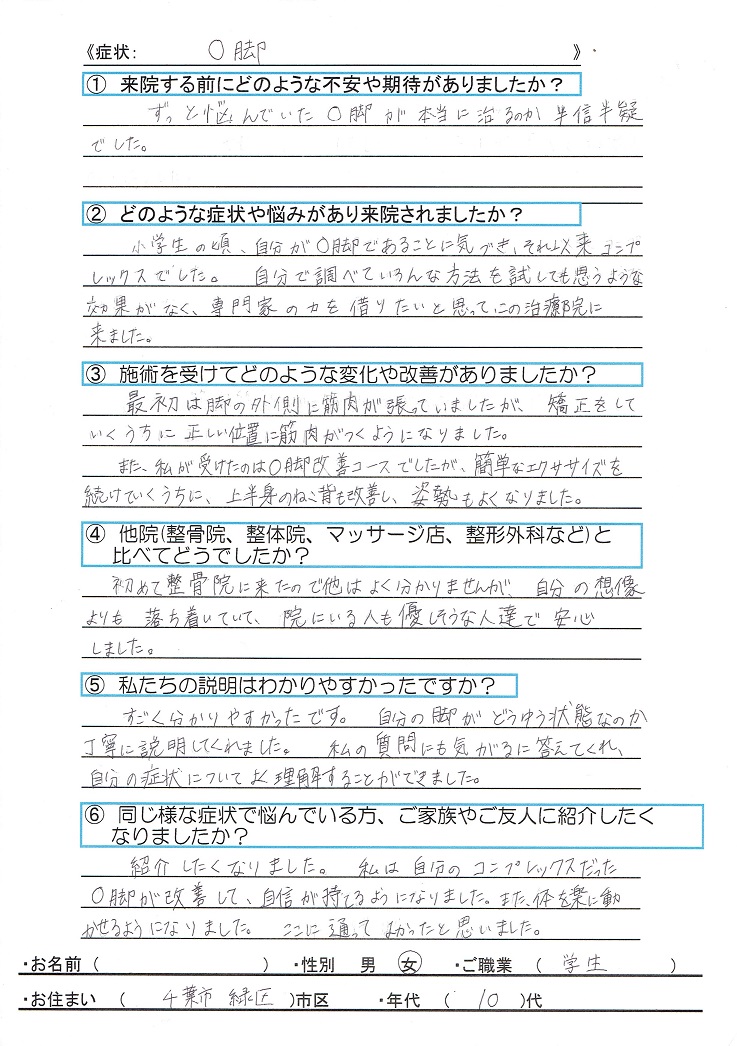 《症状: O脚 》
① 来院する前にどのような不安や期待がありましたか？
ずっと悩んでいたO脚が本当に治るのか半信半疑
でした。
② どのような症状や悩みがあり来院されましたか？
小学生の頃、自分がO脚であることに気づき、それ以来コンプ
レックスでした。 自分で調べていろんな方法を試しても思うような
効果がなく、専門家の力を借りたいと思って、この治療院に
来ました。
③ 施術を受けてどのような変化や改善がありましたか？
最初は脚の外側に筋肉が張っていましたが、矯正をして
いくうちに正しい位置に筋肉がつくようになりました。
また、私が受けたのはO脚改善コースでしたが、簡単なエクササイズを
続けていくうちに、上半身のねこ背も改善し、姿勢もよくなりました。
④ 他院(整骨院、整体院、マッサージ店、整形外科など)と
比べてどうでしたか？
初めて整骨院に来たので他はよく分かりませんが、自分の想像
よりも 落ち着いていて、院にいる人も優しそうな人達で安心
しました。
⑤ 私たちの説明はわかりやすかったですか？
すごく分かりやすかったです。 自分の脚がどうゆう状態なのか
丁寧に説明してくれました。 私の質問にも気がるに答えてくれ、
自分の症状についてよく理解することができました。
⑥ 同じ様な症状で悩んでいる方、ご家族やご友人に紹介したく
なりましたか？
紹介したくなりました。 私は自分のコンプレックスだった
O脚が改善して、自信が持てるようになりました。また、体を楽に動
かせるようになりました。 ここに通ってよかったと思いました。
・お名前 ( ) ・性別 男 女 ・ご職業 ( 学生 )
・お住まい ( 千葉市 緑区 )市区 ・年代 ( 10 )代